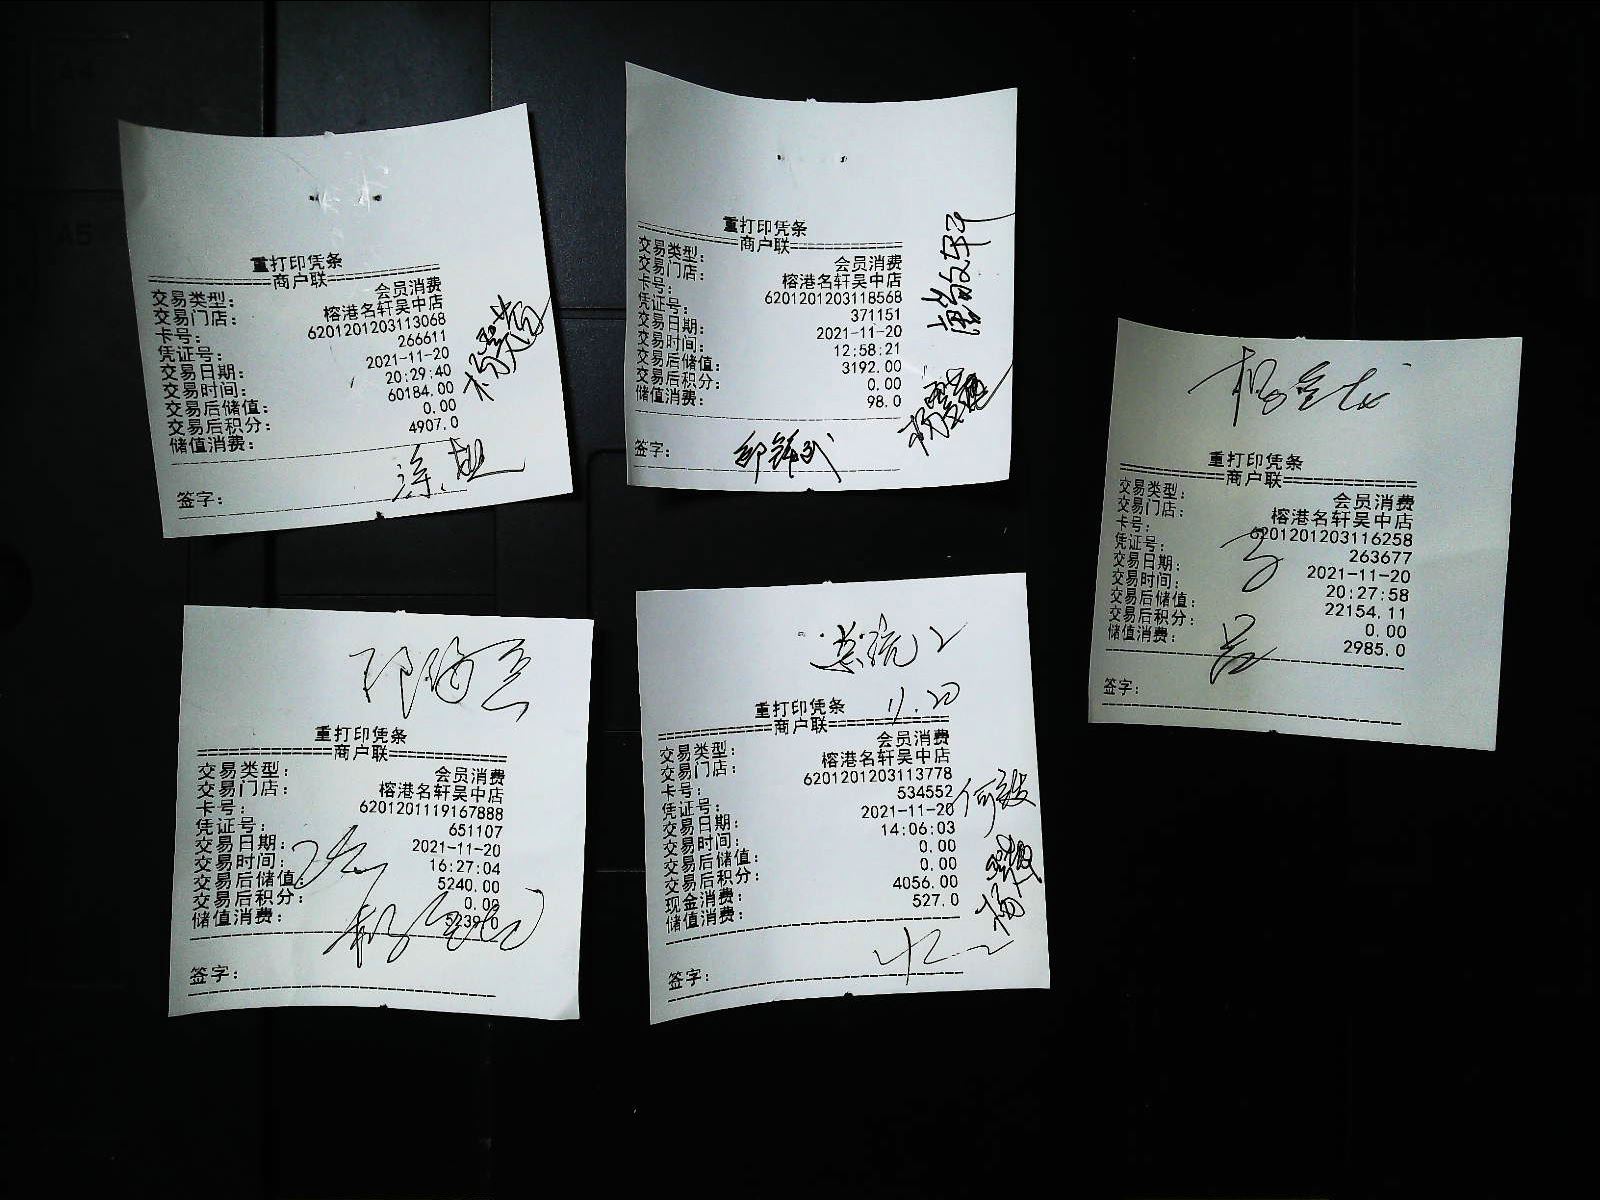 重打印凭条
商户联
交易类型： 会员消费
交易门店： 榕港名轩吴中店
卡号： 6201201203113068
凭证号： 266611
交易日期： 2021-11-20
交易时间： 20:29:40
交易后储值： 60184.00
交易后积分： 0.00
储值消费： 4907.0
签字：
重打印凭条
商户联
交易类型： 会员消费
交易门店： 榕港名轩吴中店
卡号： 6201201203118568
凭证号： 371151
交易日期： 2021-11-20
交易时间： 12:58:21
交易后储值： 3192.00
交易后积分： 0.00
储值消费： 98.0
签字：
重打印凭条
商户联
交易类型： 会员消费
交易门店： 榕港名轩吴中店
卡号： 6201201203116258
凭证号： 263677
交易日期： 2021-11-20
交易时间： 20:27:58
交易后储值： 22154.11
交易后积分： 0.00
储值消费： 2985.0
签字：
重打印凭条
商户联
交易类型： 会员消费
交易门店： 榕港名轩吴中店
卡号： 6201201119167888
凭证号： 651107
交易日期： 2021-11-20
交易时间： 16:27:04
交易后储值： 5240.00
交易后积分： 0.00
储值消费：
签字：
11.20
重打印凭条
商户联
交易类型： 会员消费
交易门店： 榕港名轩吴中店
卡号： 6201201203113778
凭证号： 534552
交易日期： 2021-11-20
交易时间： 14:06:03
交易后储值： 0.00
交易后积分： 0.00
现金消费： 4056.00
储值消费： 527.0
签字：